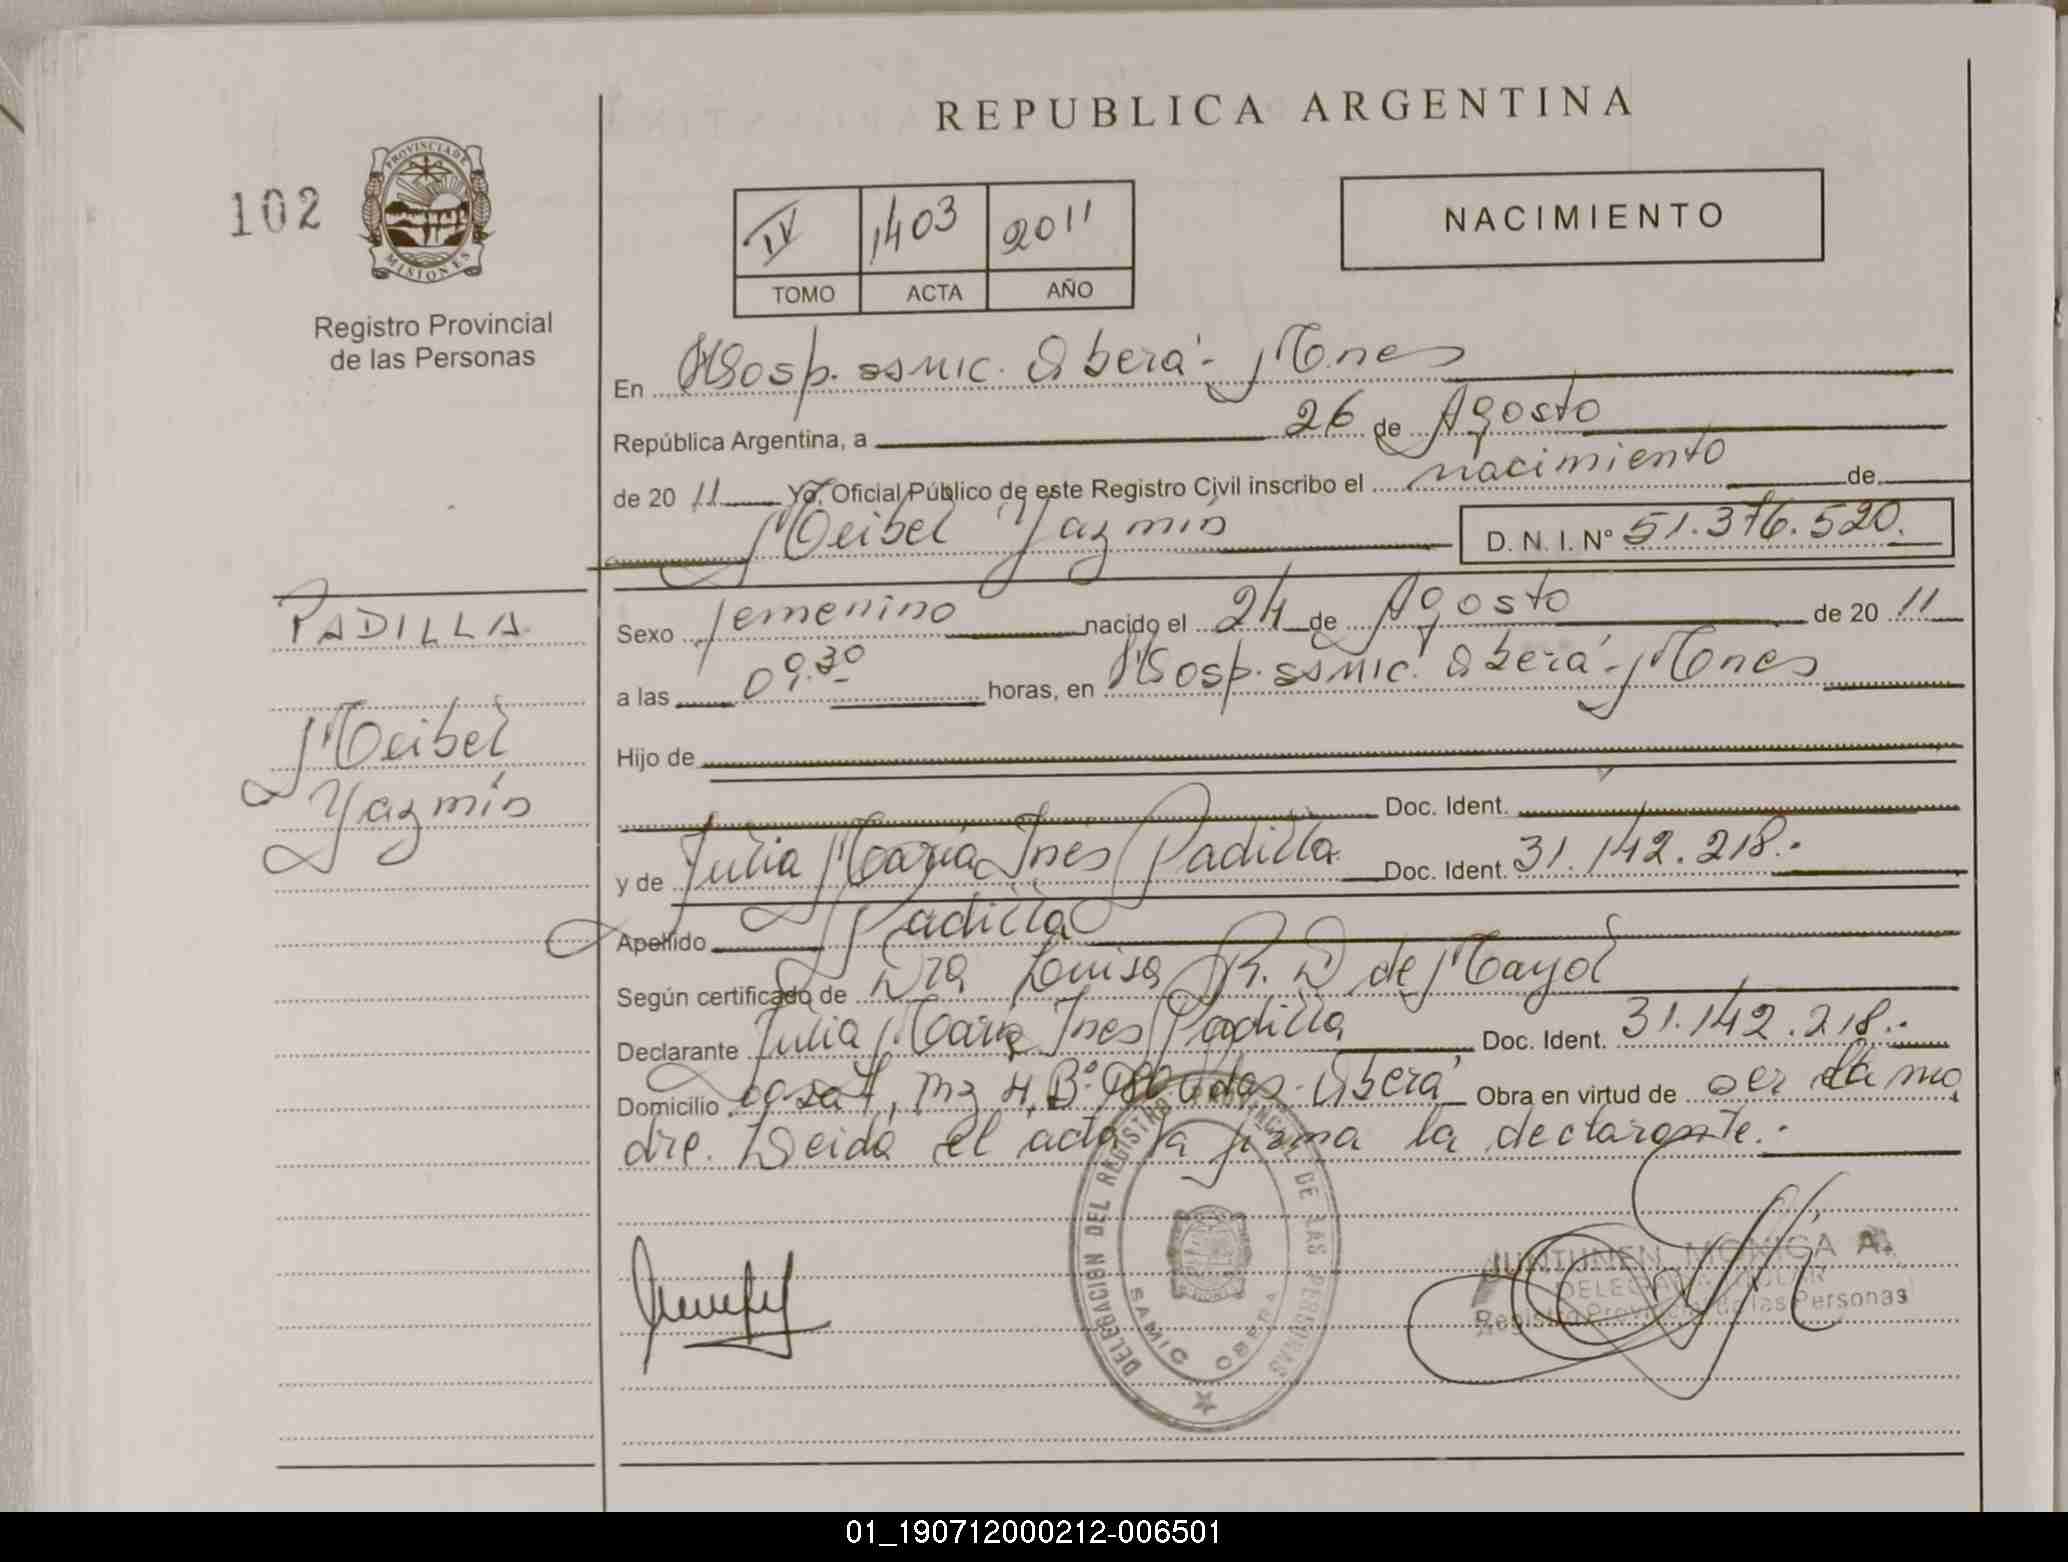 REPUBLICA ARGENTINA
102
PROVINCIA DE MISIONES
Registro Provincial
de las Personas
IV 1403 2011
TOMO ACTA AÑO
NACIMIENTO
En Hosp. ssmic. Oberá - Mnes
República Argentina, a 26 de Agosto
de 20 11 Yo, Oficial Público de este Registro Civil inscribo el nacimiento de
Meibel Yazmín D. N. I. Nº 51.376.520.
PADILLA
Meibel
Yazmín
Sexo femenino nacido el 24 de Agosto de 20 11
a las 09.30 horas, en Hosp. ssmic. Oberá - Mnes
Hijo de
Doc. Ident.
y de Julia María Inés Padilla Doc. Ident. 31.142.218.-
Apellido Padilla
Según certificado de Dra Louisa R. D de Mayol
Declarante Julia María Ines Padilla Doc. Ident. 31.142.218.-
Domicilio casa 7, mz H, Bº Oberá Obra en virtud de ser la ma
dre. Leida el acta la firma la declarante.-
DELEGACION DEL REGISTRO PROVINCIAL DE LAS PERSONAS
SAMIC OBERA
JUNTUNEN MONICA A.
DELEGADA TITULAR
Registro Provincial de las Personas
01_190712000212-006501